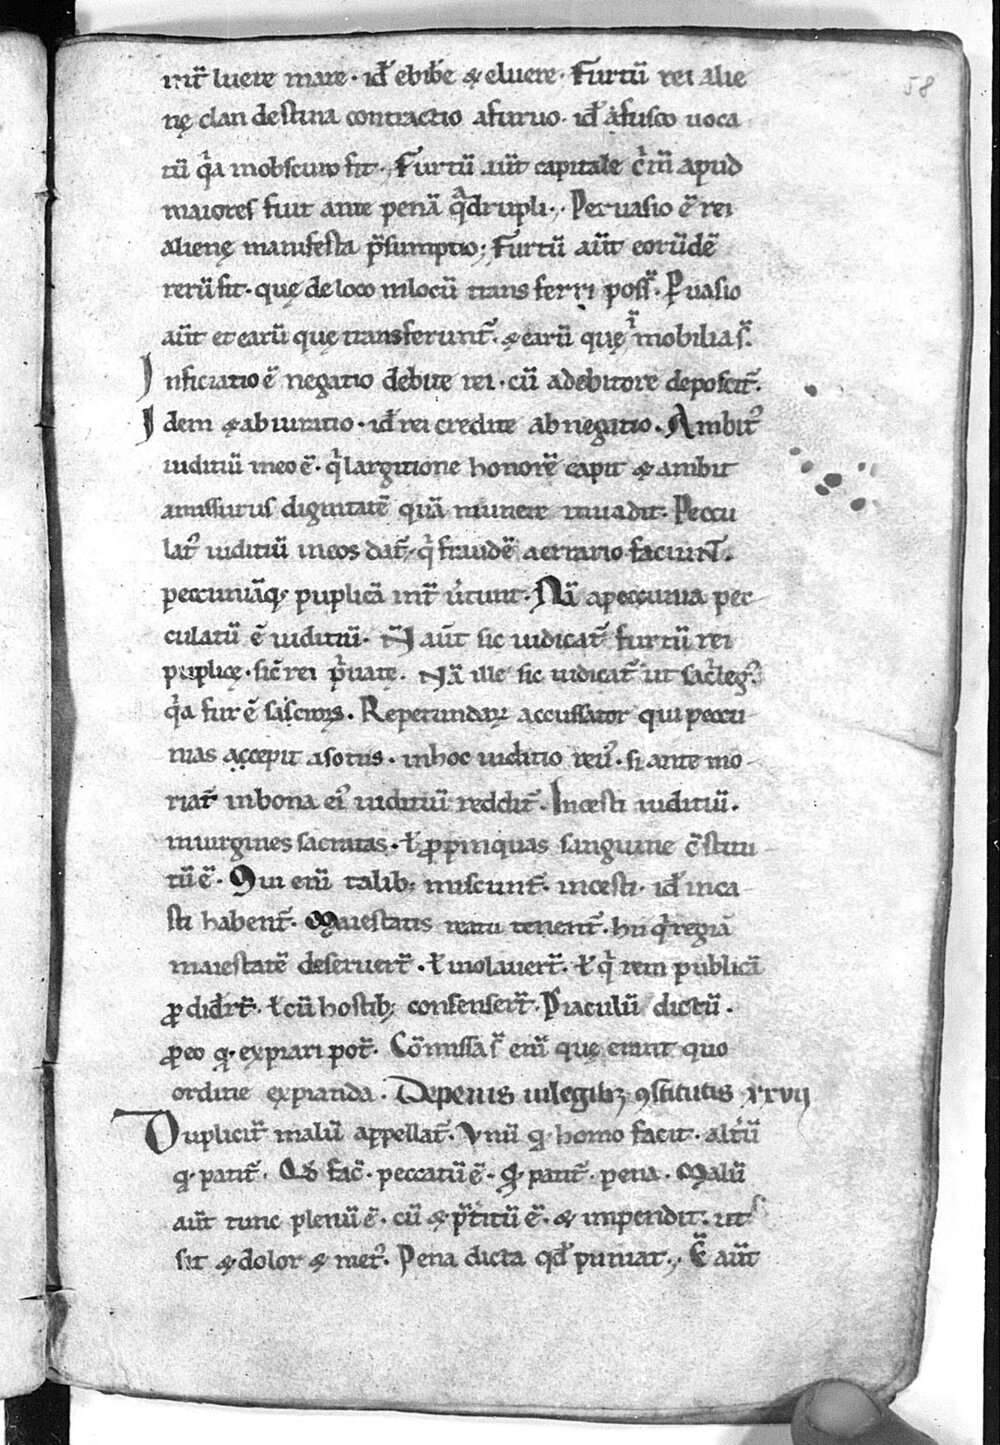 58
int̄ luere mare · id̄ ebibe ⁊ eluere · Furtū rei alie
nę clandestina contractio a furuo · id̄ a fusco uoca
tū q̇a in obscuro fit · Furtū aūt capitale c̓m̄ apud
maiores fuit ante penā qᵃdrupli · Peruasio ē rei
alienę manifesta p̄sumptio; Furtū aūt eorūdē
rerū fit · quę de loco in locū transferri poss̄ · Puasio
aūt et earū quę transferunt̄ · ⁊ earū quę īmobilia s̄ ·
Inficiatio ē negatio debite rei · cū a debitore deposcit̄ ·
Idem ⁊ abiuratio · id̄ rei credite abnegatio · Ambit᾽
iuditiū in eo ē · q̇ largitione honorē capit ⁊ ambit
amissurus dignitatē quā munere inuadit · Peccu
lat᾽ iuditiū in eos dat̄ · q̇ fraudē aerrario faciunt ·
peccuniāq; puplicā int̄ u᾽tunt · Nā a peccunia pec
culatū ē iuditiū · N̄ aūt sic iudicat̄ furtū rei
puplicę · sic̄ rei ṗuatę · Nā ille sic iudicat̄ ut sac̓leg᾽
q̇a fur ē
Repetundaꝝ accussator qui peccu
nias accepit a sotiis · in hoc iuditio reu᾽ · si ante mo
riat̄ in bona ei᾽ iuditiū reddit̄ · Incesti iuditiū ·
in uirgines sacratas · ł ꝓpinquas sanguine c̄stitu
tū ē · Qui enī talib; miscunt̄ · incesti · id̄ inca
sti habent̄ · Maiestatis reatu tenent̄ · hii q̇ regiā
maiestatē deseruer̄t · ł uiolauer̄t · ł q̇ rem publicā
ꝓdider̄t · ł cū hostib; consenser̄t · Piaculū dictū ·
ꝓ eo q · expiari pot̄ · Cōmissa s̄ enī quę erant quo
ordine expianda · De penis in legib; ꝯstitutis xxvii
Duplicit̄ malū appellat̄ · Vnū q · homo facit · altū
q · patit̄ · Qd̄ fac̄ · peccatū ē · Q · patit̄ · pena · Malū
aūt tunc plenū ē · cū ⁊ p̄t̓itū ē · ⁊ impendit · ut
sit ⁊ dolor ⁊ met᾽ · Pena dicta qd̄ puniat · Ē aūt